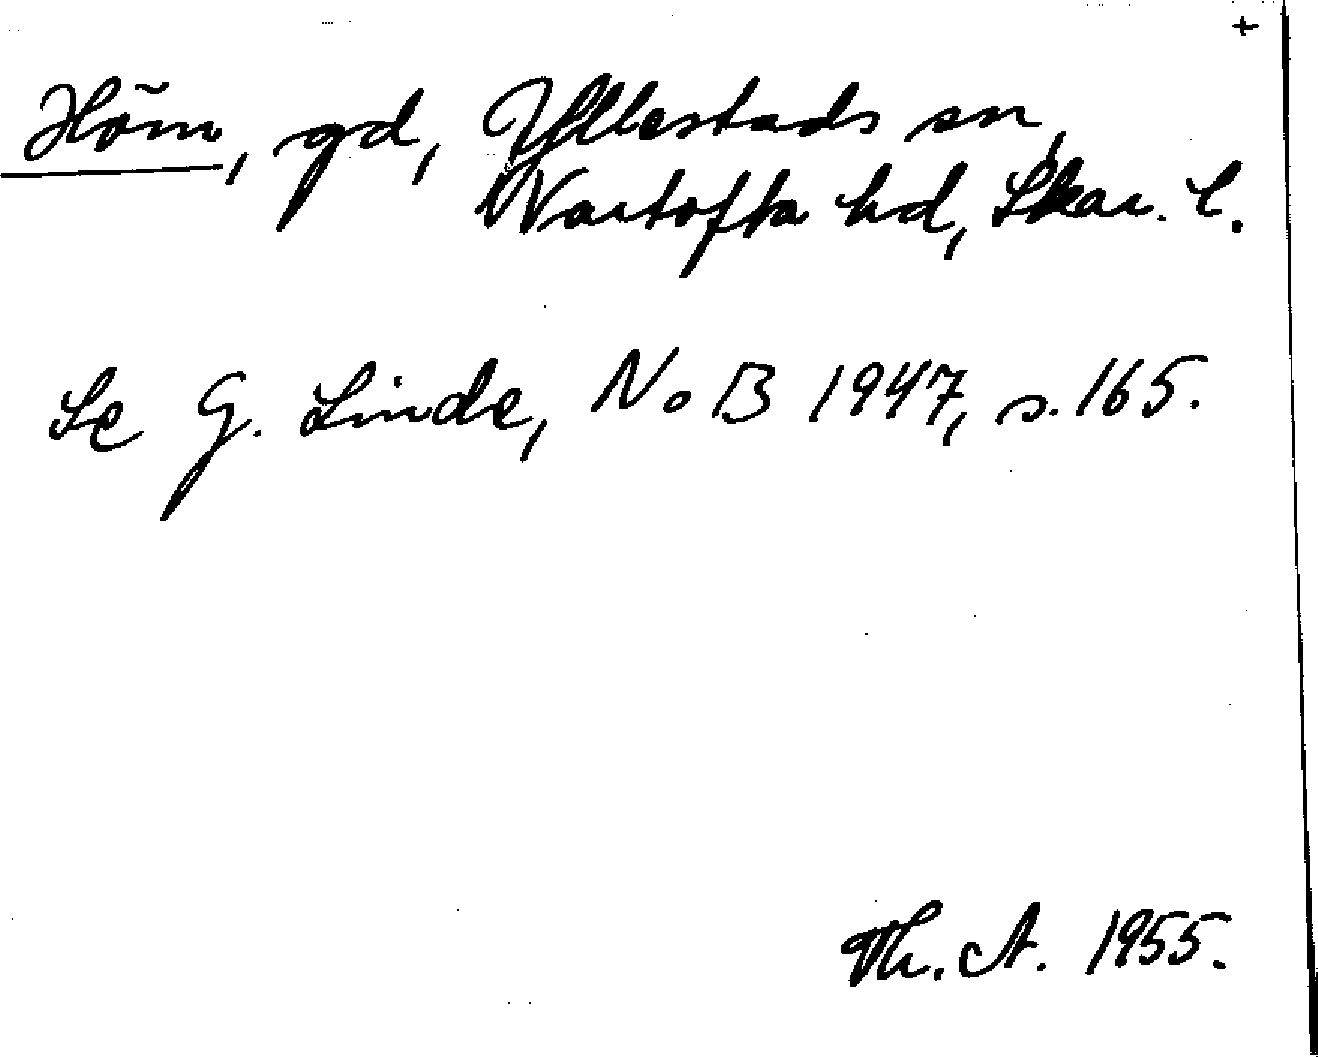 +
Höm, gd, Yllestads sn,
Vartofta hd, Skar. l.
Se G. Linde, NoB 1947, s. 165.
Th. A. 1955.